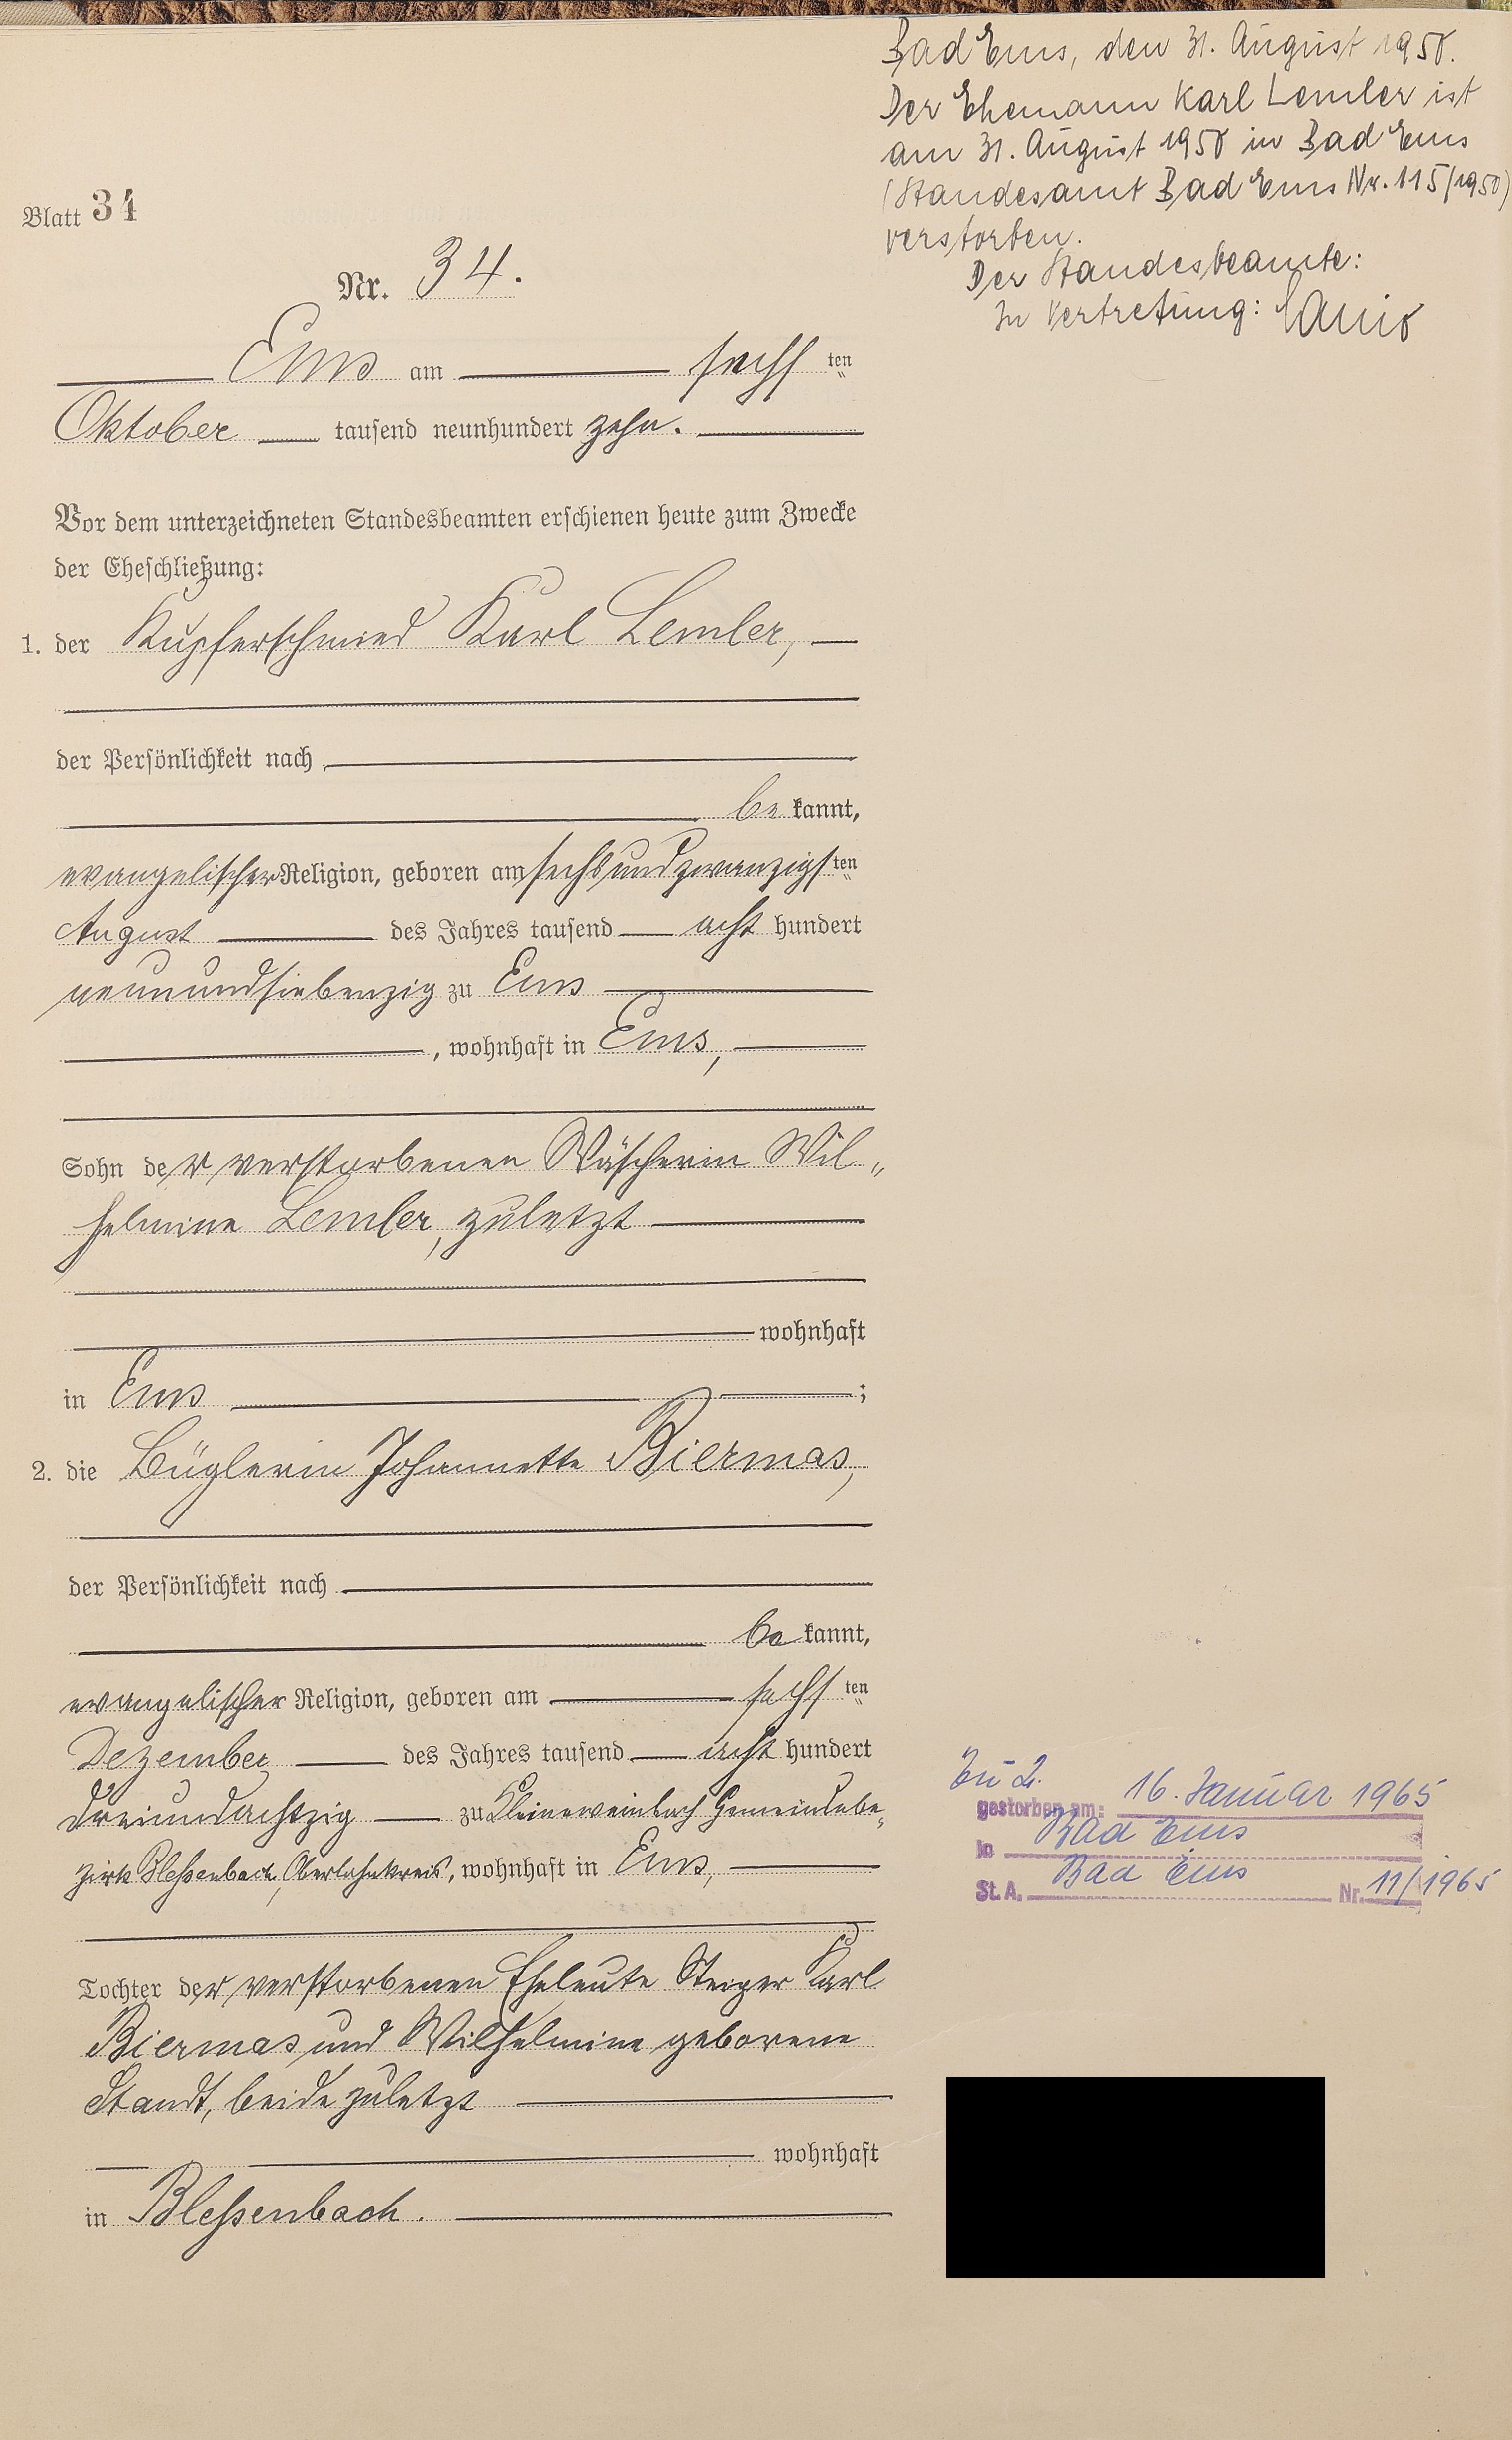 Blatt 34
Nr. 34.
Ems am sechsten
Oktober tausend neunhundert zehn.
Vor dem unterzeichneten Standesbeamten erschienen heute zum Zwecke
der Eheschließung:
1. der Kupferschmied Karl Lemler,
der Persönlichkeit nach
be kannt,
evangelischer Religion, geboren am sechsundzwanzigsten
August des Jahres tausend acht hundert
neunundsiebenzig zu Ems
, wohnhaft in Ems,
Sohn der verstorbenen Wäscherin Wil„
helmine Lemler, zuletzt
wohnhaft
in Ems ;
2. die Büglerin Johannette Biermas,
der Persönlichkeit nach
be kannt,
evangelischer Religion, geboren am sechsten
Dezember des Jahres tausend acht hundert
dreiundachtzig zu Kleineweinbach Gemeindebe„
zirk Bleßenbach, Oberlahnkreis, wohnhaft in Ems,
Tochter der verstorbenen Eheleute Steiger Karl
Biermas und Wilhelmine geborene
Standt, beide zuletzt
wohnhaft
in Bleßenbach.
Bad Ems, den 31. August 1950.
Der Ehemann Karl Lemler ist
am 31. August 1950 in Bad Ems
(Standesamt Bad Ems Nr. 115/1950)
verstorben.
Der Standesbeamte:
In Vertretung:
Zu 2.
gestorben am: 16. Januar 1965
in Bad Ems
St. A. Bad Ems Nr. 11/1965